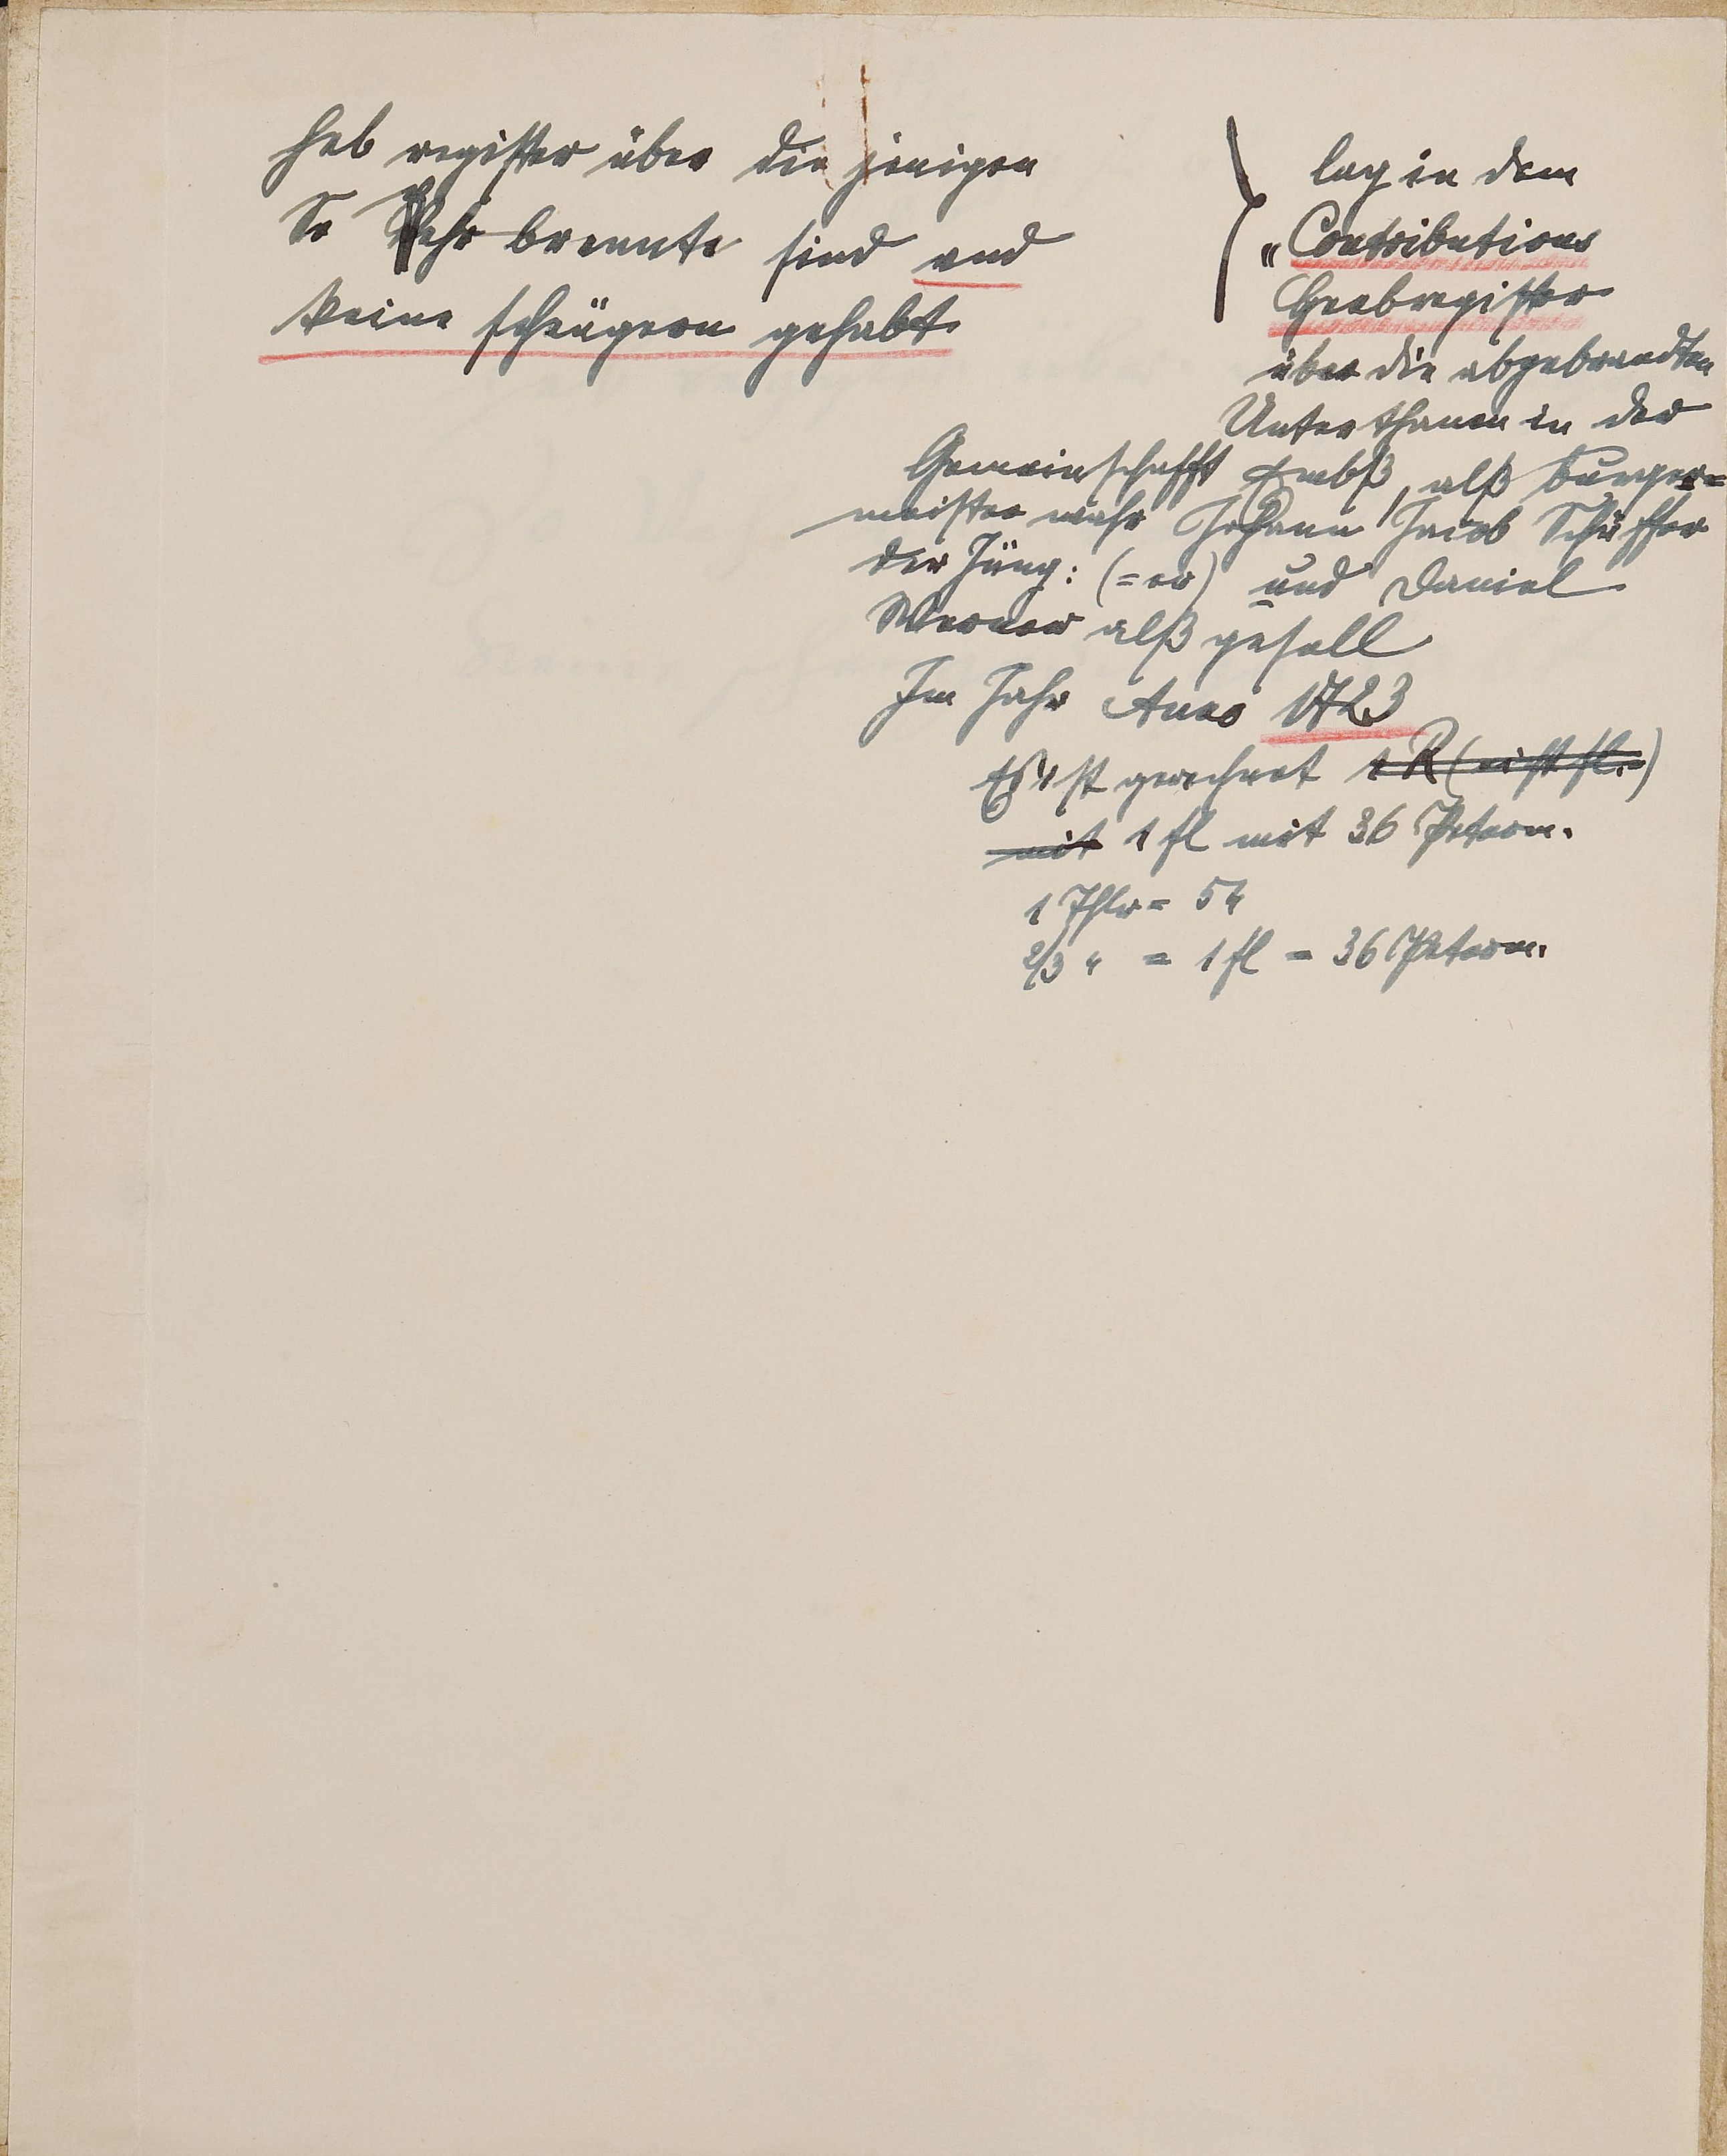 heb register über die jenigen
So Vehr brennte sind und
keine scheügern gehabt
lag in dem
„Contributions
Heebregister
über die abgebrandten
Unterthanen in der
Gemeinschafft Embß, alß burger=
meister wahr Johann Jacob Schäffer
der Jüng: (=er) und Daniel
Werner alß gesell
Im Jahr Anno 1723
Es ist gerechnet 1 R (nicht fl.=)
mit 1 fl mit 36 Peterm.
1 Thlr = 54
2/3 " = 1 fl = 36 Peterm.